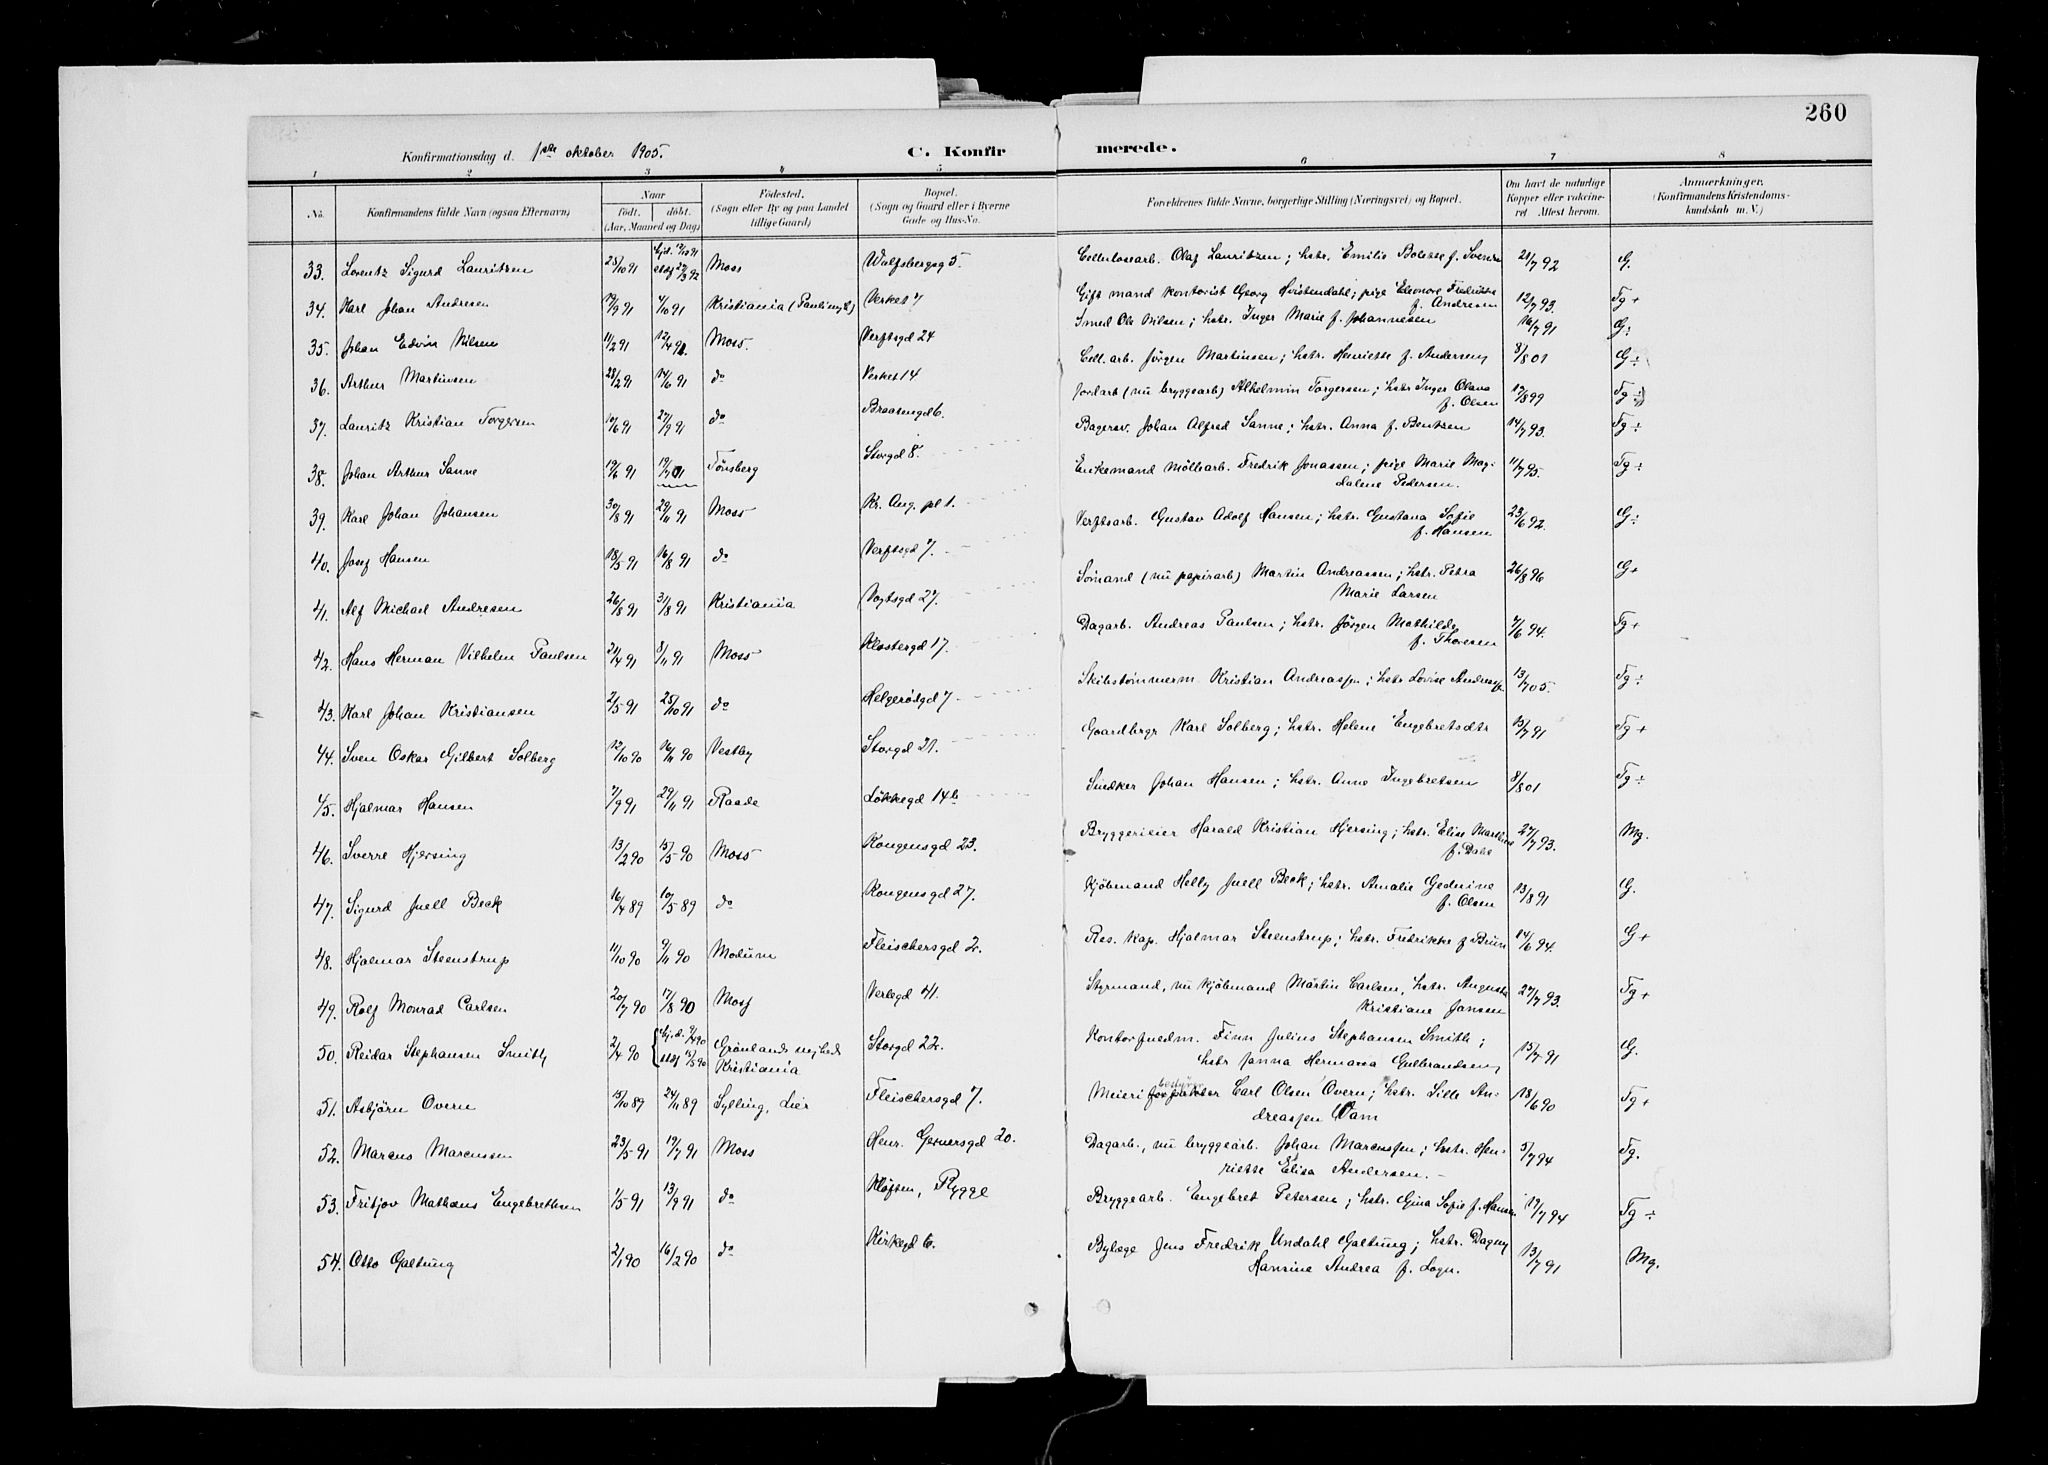 260
Konfirmationsdag d. 1ste oktober 1905.
C. Konfirmerede.
1 2 3 4 5 6 7 8
No. Konfirmandens fulde Navn (ogsaa Efternavn) Naar født. døbt. (Aar, Maaned og Dag) Fødested. (Sogn eller By og paa Landet tillige Gaard) Bopæl. (Sogn og Gaard eller i Byerne Gade og Hus-No. Forældrenes fulde Navne, borgerlige Stilling (Næringsvei) og Bopæl. Om havt de naturlige Kopper eller vakcineret Attest herom. Anmærkninger. (Konfirmandens Kristendomskundskab m. V.)
33. Lorentz Sigurd Lauritzen 28/10 91 Hjd. 12/10 91 Moss Wulfsbergsg 5. Cellulosearb. Olaf Lauritzen; hstr. Emilie Bolette f. Svendsen 21/7 92 G.
34. Karl Johan Andresen 19/9 91 4/10 91 Kristiania Verket 7 Gift mand kontorist Georg Hvistendahl; pige Eleonore Fredrikke f. Andresen 12/7 93. Tg +
35. Johan Edvin Nilsen 11/2 91 12/4 91. Moss. Verftsgd 24 Smed Ole Nilsen; hstr. Inger Marie f. Johannesen 16/7 91 G÷
36. Arthur Martinsen 28/2 91 14/6 91 do Verket 14 Cell. arb. Jørgen Martinsen; hstr. Henriette f. Andersen 8/8 01 G÷
37. Lauritz Kristian Torgersen 10/6 91 27/9 91 do Braatengd 6. Jordarb (nu bryggearb) Alhelmin Torgersen; hstr Inger Olava f. Olsen 17/8 99 Tg ÷
38. Johan Arthur Sanne 19/6 91 19/7 91 Tønsberg Storgd 8. Bagersv. Johan Alfred Sanne; hstr. Anna f. Bentzen 14/7 93. Tg ÷
39. Karl Johan Johansen 30/8 91 29/11 91 Moss Kr. Aug. pl 1. Enkemand Møllearb. Fredrik Jonassen; pige Marie Magdalene Pedersen. 11/7 95. Tg ÷
40. Josef Hansen 18/5 91 16/8 91 do Verftsgd 7. Verftsarb. Gustav Adolf Hansen; hstr. Gustava Sofie f. Hansen 23/6 92. G÷
41. Alf Michael Andresen 26/6 91 31/8 91 Kristiania Vogtsgd 27. Sømand (nu papirarb) Martin Andreassen; hstr. Petra Marie Larsen 26/8 96 G+
42. Hans Herman Vilhelm Paulsen 21/4 91 8/11 91 Moss Klostergd 17. Dagarb. Andreas Paulsen; hstr. Jørgen Mathilde f. Thoresen 7/6 94. Tg+
43. Karl Johan Kristiansen 2/5 91 25/10 91 do Helgerødgd 7 Skibstømmerm. Kristian Andreassen; hstr Lovise Andreassen 13/7 05. Tg ÷
44. Sven Oskar Gilbert Solberg 12/10 90 16/11 90 Vestby Storgd 21. Gaardbrgr Karl Solberg; hstr. Helene Engebretsdtr 13/7 91 Tg +
45. Hjalmar Hansen 7/9 91 29/11 91 Raade Løkkegd 14b Snedker Johan Hansen; hstr. Anne Ingebretsen 8/8 01 Tg ÷
46. Sverre Hjersing 13/2 90 15/5 90 Moss Kongensgd 23. Bryggerieier Harald Kristian Hjersing; hstr. Elise f. Dahl 27/7 93. Mg.
47. Sigurd Juell Beck 16/4 89 10/5 89 do Kongensgd 27. Kjøbmand Helly Juell Beck; hstr. Amalie Gedvine f. Olsen 13/8 91 G.
48. Hjalmar Steenstrup 11/10 90 9/11 90 Modum Fleischersgd 2. Res. kap. Hjalmar Steenstrup; hstr. Fredrikke f Brun 14/6 94. G+
49. Rolf Monrad Carlsen 20/7 90 17/8 90 Moss Verlegd 41. Styrmand, nu kjøbmand Martin Carlsen, hstr. Augusta Kristiane Jansen 27/7 93. Tg +
50. Reidar Stephansen Smith 2/4 90 Grønlands Kristiania Storgd 22. Kontorfuldm. Finn Julius Stephansen Smith; hstr Janna Hermana Gulbrandsen 15/7 91 G.
51. Asbjørn Overn 15/10 89 24/11 89 Sylling, Lier Fleischersgd 7. Meieri bestyrer Carl Olsen Overn; hstr. Lille Andreassen Wam 18/6 90 Tg+
52. Marcus Marcussen 23/5 91 19/7 91 Moss Henr. Gernersgd 20. Dagarb., nu bryggearb. Johan Marcussen; hstr. Henriette Elisa Andersen. 5/7 94 Tg.
53. Fritjov Mathæus Engebrethsen 1/5 91 13/9 91 do Kløften, Rygge Bryggearb. Engebret Petersen; hstr. Gina Sofie f. Hansen 19/7 94 Tg ÷
54. Otto Galtung 2/1 90 16/2 90 do Kirkegd 6. Bylæge Jens Fredrik Undahl Galtung; hstr. Dagny Hansine Andrea f. Logn. 13/7 91 Mg.